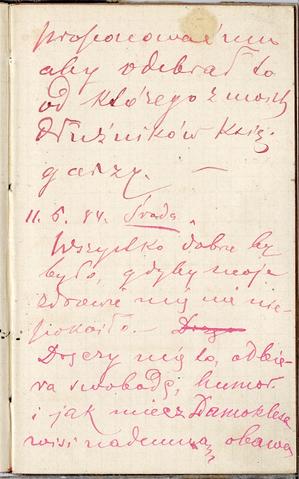 proponować mu
aby odebrał to
od którego z moich
dłużników Księ-
garzy. —
11. 6. 84. Środa.
Wszystko dobrze by
było, gdyby moje
zdrowie mię nie nie-
pokoiło. —
Dręczy mię to, odbie-
ra swobodę, humor
i jak miecz Damoklesa
wisi nademną obawa